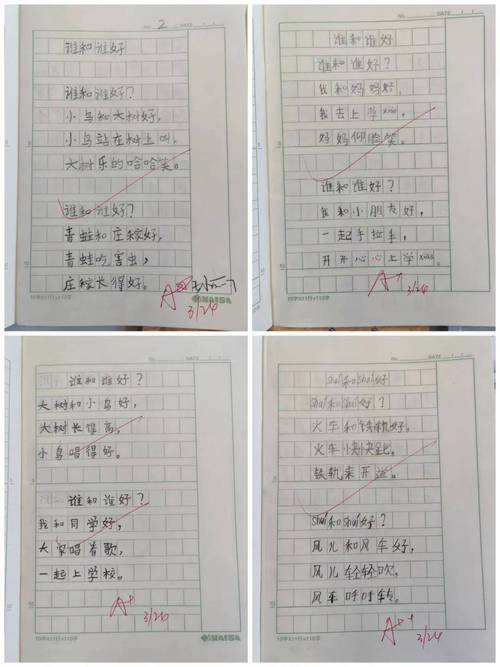 No. 2 DATE
谁和谁好
谁和谁好?
小鸟和大树好,
小鸟站在树上叫,
大树乐的哈哈笑。
谁和谁好?
青蛙和庄稼好,
青蛙吃害虫,
庄稼长得好。
3/24
NAISA
No. DATE
谁和谁好
谁和谁好?
我和妈妈好,
我去上学xiào,
妈妈仰脸笑。
谁和谁好?
我和小朋友好,
一起手拉车,
开开心心上学xiào
A+
3/24
No. DATE
谁和谁好?
大树和小鸟好,
大树长谁高,
小鸟唱得好。
谁和谁好?
我和同学好,
大家唱着歌,
一起上学校。
A+
3/24
NAISA
DATE
Shuí和Shuí好
Shuí和Shuí好?
火车和铁轨好。
火车快快跑。
铁轨来开运。
Shuí和Shuí好?
风儿和风车好,
风儿轻轻吹,
风车呼呼转。
A++
3/24